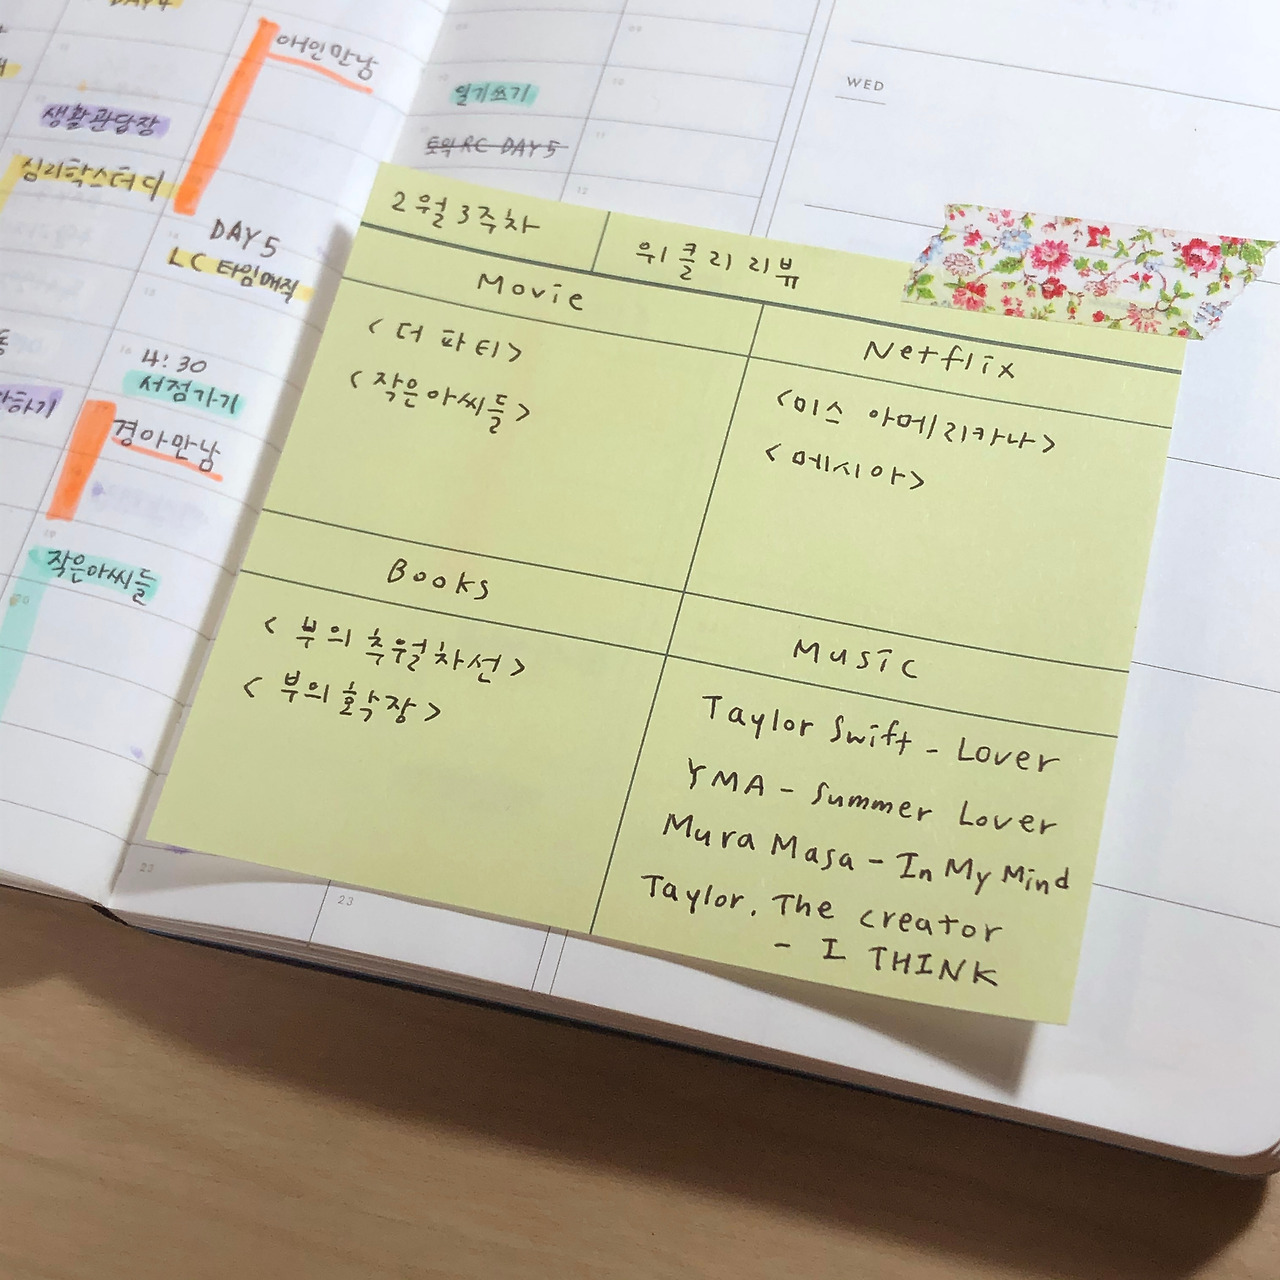 DAY4
애인만남
생활관답장
심리학스터디
DAY 5
LC 타임매직
4:30
서점가기
경아만남
작은아씨들
일기쓰기
토익 RC DAY 5
WED
2월 3주차
위클리 리뷰
Movie
<더 파티>
<작은아씨들>
Netflix
<미스 아메리카나>
<메시아>
Books
<부의 추월차선>
<부의 확장>
Music
Taylor Swift - Lover
YMA - Summer Lover
Mura Masa - In My Mind
Taylor. The creator
- I THINK
22
23